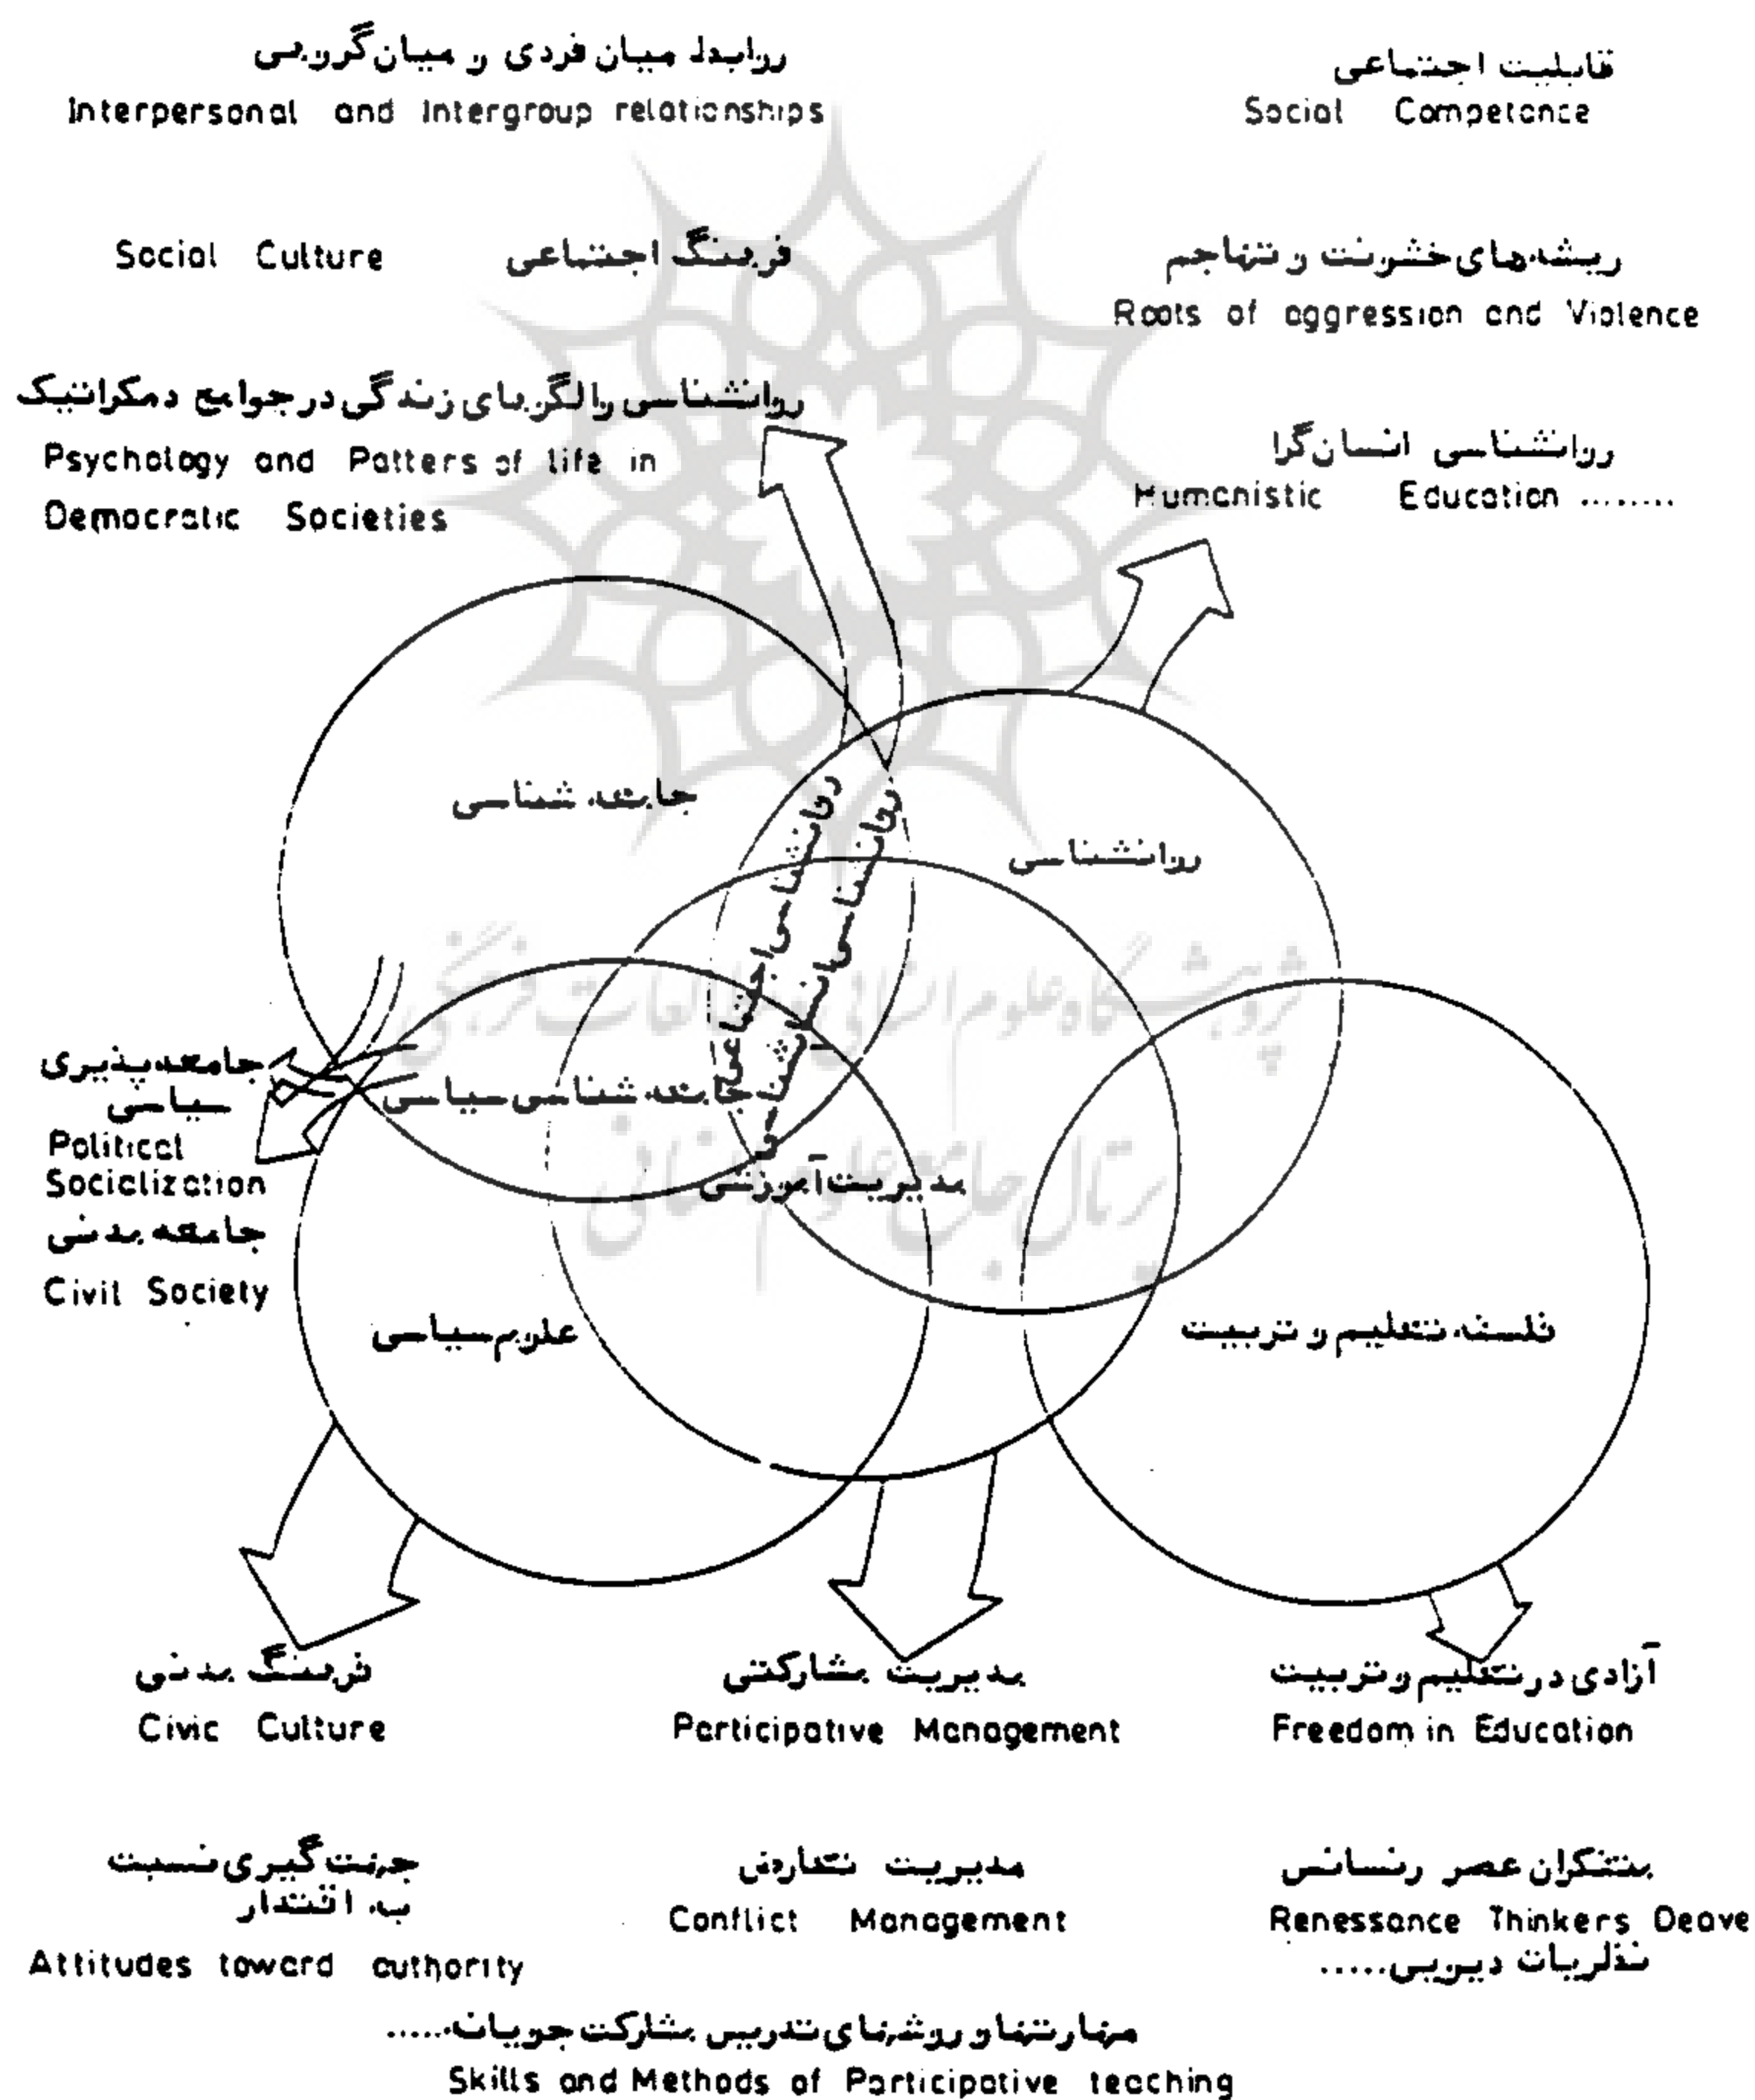 روابط میان فردی و میان گروهی
Interpersonal and Intergroup relationships
قابلیت اجتماعی
Social Competance
Social Culture فرهنگ اجتماعی
ریشه‌های خشونت و تهاجم
Roots of aggression and Violence
روانشناسی و الگوهای زندگی در جوامع دمکراتیک
Psychology and Patters of life in
Democratic Societies
روانشناسی انسان‌گرا
Humanistic Education ........
جامعه شناسی
روانشناسی
روانشناسی اجتماعی
پژوهشگاه علوم انسانی و مطالعات فرهنگی
جامعه‌پذیری
سیاسی
Political
Socialization
جامعه مدنی
Civil Society
جامعه شناسی سیاسی
پرتال جامع علوم انسانی
مدیریت آموزشی
علوم سیاسی
فلسفه تعلیم و تربیت
فرهنگ مدنی
Civic Culture
مدیریت مشارکتی
Participative Management
آزادی در تعلیم و تربیت
Freedom in Education
جهت گیری نسبت
به اقتدار
Attitudes toward authority
مدیریت تعارض
Conflict Management
متفکران عصر رنسانس
Renessance Thinkers Deave
نظریات دیویی.....
مهارتها و روشهای تدریس مشارکت جویانه.....
Skills and Methods of Participative teaching